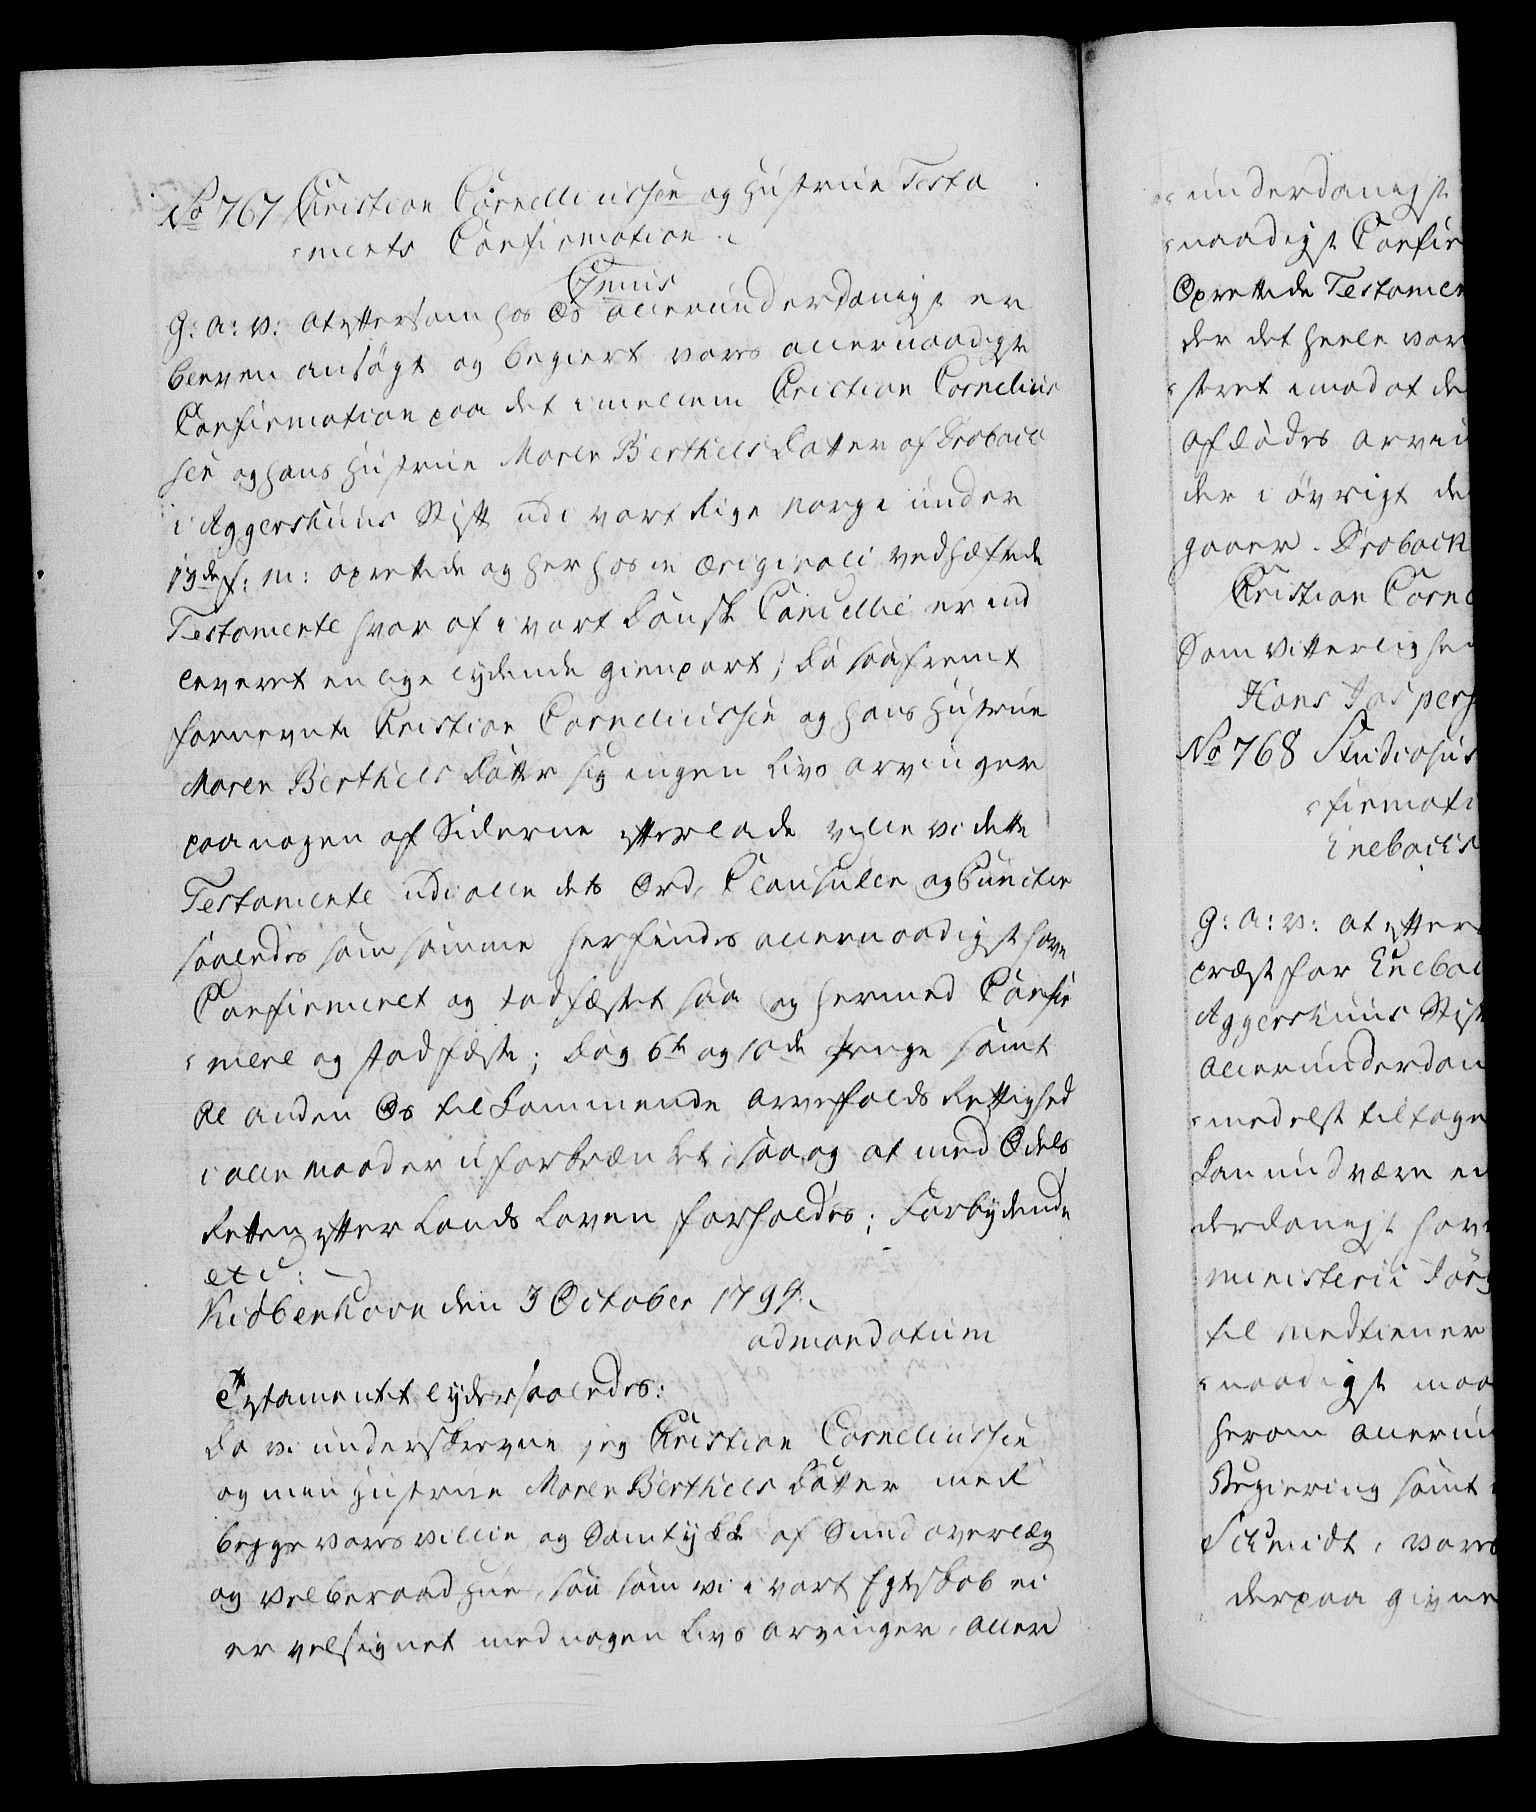 No 767 Christian Corneliussen og Hustrue Testa
ments Confirmation.
Genus
G: A: V: at eftersom hos Os allerunderdanigst er
bleven ansøgt og begiert vores allernaadigste
Confirmation paa det imellem Christian Cornelius
sen og hans Hustrue Maren Berthels Datter af Drøback
i Aggershuus Stift udi vort Rige Norge under
13de f: M: oprettede og her hos in Originali vedhæftede
Testamente hvor af i vort Danske Cancellie er ind
leveret en lige lydende Gienpart; Da saafremt
fornevnte Christian Corneliussen og hans Hustrue
Maren Berthels Datter sig ingen Livs Arvinger
paa nogen af Siderne efterlade ville vi dette
Testamente udi alle dets Ord, Clausuler og Puncter
saaledes som samme her findes allernaadigst have
Confirmeret og stadfæstet saa og hermed Confir
mere og stadfæste; Dog 6te og 10de Penge samt
al anden Os tilkommende Arvefalds Rettighed
i alle Maader uforkrænket, saa og at med Odels
Retten efter Lands Loven forholdes; Forbydende
etc:
Kiøbenhavn den 3 October 1794.
ad mandatum
Testamentet lyder saaledes:
Da vi underskrevne jeg Christian Corneliussen
og min Hustrue Maren Berthels Datter med
begges vores Villie og Samtykke af Sund Overlæg
og velberaad Hue, saa som vi i vort Egteskab ei
er velsignet med nogen Livs Arvinger, aller
underdanigst
naadigst Confir
Oprettede Testamen
der det heele vor
stret imod at de
afdødes Arvi
der i øvrigt de
gaaer. Drøback
Christian Corne
Som Vitterlighed
Hans Jespers
No 768 Studiosus
firmati
Enebachs
G: A: V: at efters
Præst for Eneba
Aggershuus Stift
allerunderdan
medelst tiltage
kan undvære en
derdanigst hav
Ministerii Jørg
til Medtiener
naadigst maa
herom alleru
Regiering samt
Schmidt, vores
derpaa givne